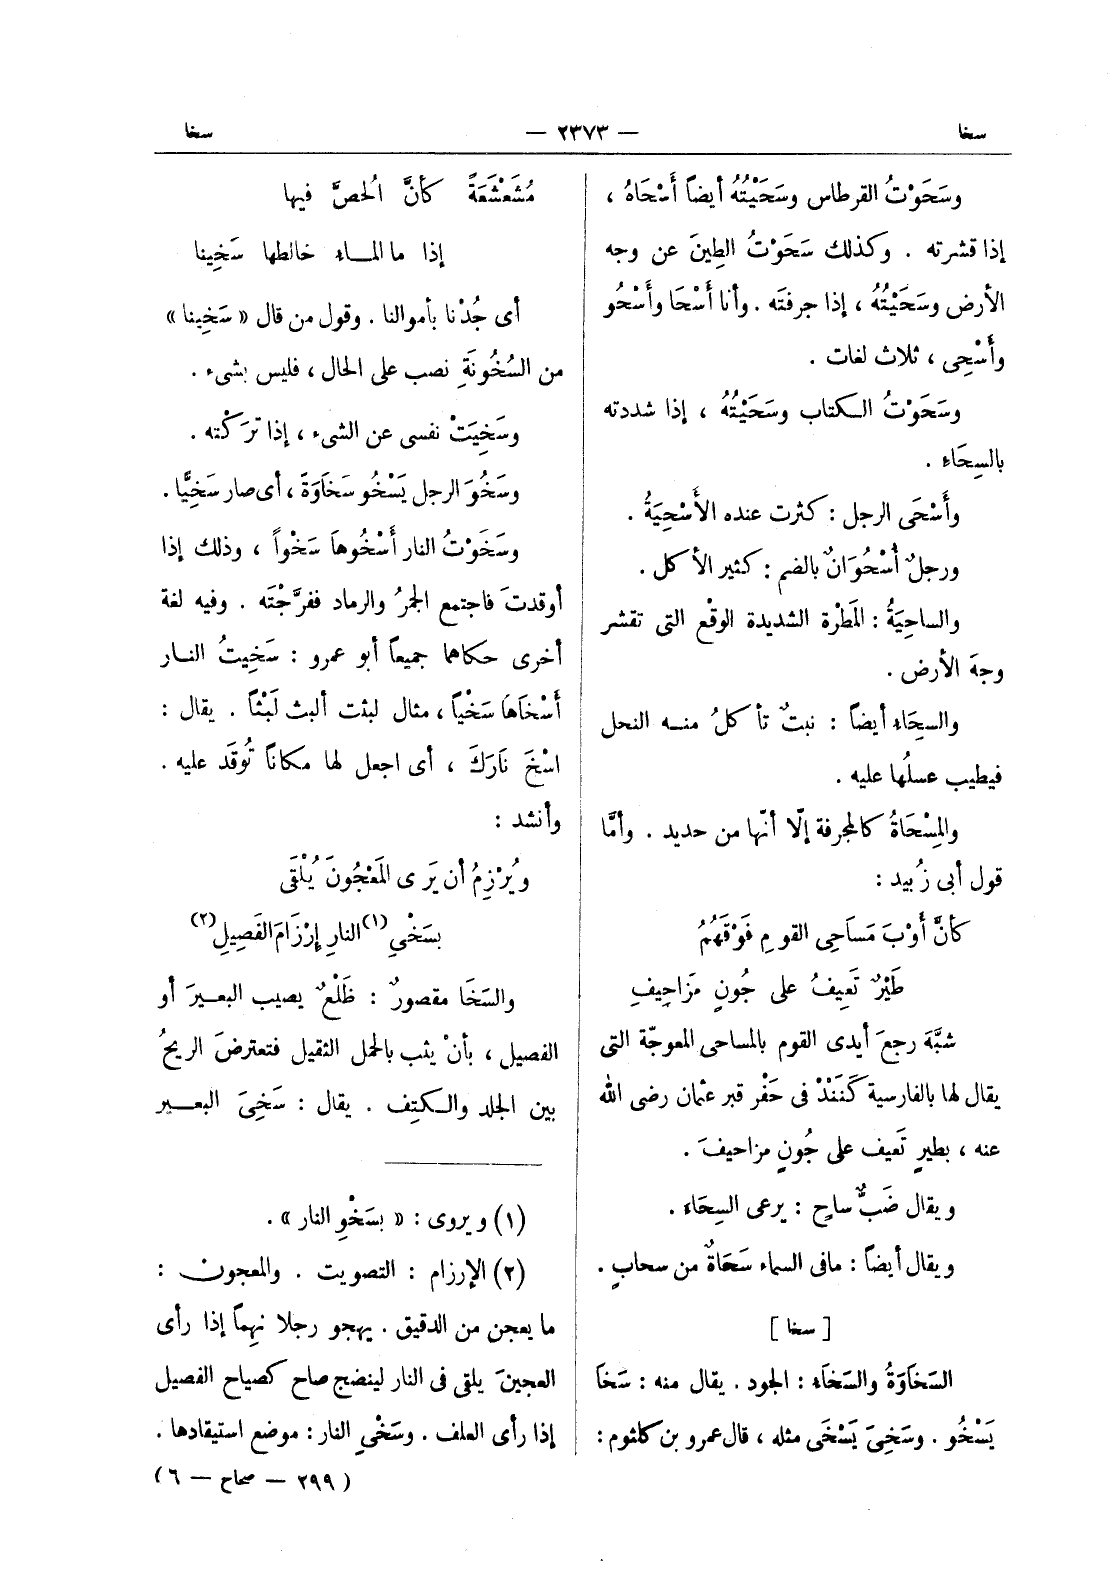 سخا
— ٢٣٧٣ —
سخا
وسَحَوْتُ القرطاس وسَحَيْتُهُ أيضاً أَسْحَاهُ ،
إذا قشرته . وكذلك سَحَوْتُ الطِينَ عن وجه
الأرض وسَحَيْتُهُ ، إذا جرفتَه . وأنا أَسْحَا وأَسْحُو
وأَسْحِى ، ثلاث لغات .
وسَحَوْتُ الكتاب وسَحَيْتُهُ ، إذا شددته
بالسِحَاءِ .
وأَسْحَى الرجل : كثرت عنده الأَسْحِيَةُ .
ورجلٌ أُسْحُوَانٌ بالضم : كثير الأكل .
والساحِيَةُ : المَطْرة الشديدة الوقْع التى تقشر
وجهَ الأرض .
والسِحَاء أيضاً : نبتٌ تأكلُ منه النحل
فيطيب عسلُها عليه .
والمِسْحَاةُ كالمجرفة إلّا أنّها من حديد . وأمَّا
قول أبى زُبيد :
كأنَّ أَوْبَ مَسَاحِى القومِ فَوْقَهُمُ
طَيْرٌ تَعِيفُ على جُونٍ مَزَاحِيفِ
شبَّهَ رجعَ أيدى القوم بالمساحى المعوجّة التى
يقال لها بالفارسية كَنَنْدْ فى حَفْر قبر عثمان رضى الله
عنه ، بطيرٍ تَعيف على جُونٍ مزاحيفَ .
ويقال ضَبٌّ ساحٍ : يرعى السِحَاء .
ويقال أيضاً : مافى السماء سَحَاةٌ من سحابٍ .
[ سخا ]
السَخَاوَةُ والسَخَاء : الجود . يقال منه : سَخَا
يَسْخُو . وسَخِىَ يَسْخَى مثله ، قال عمرو بن كلثوم :
مُشَعْشَعَةً كأنَّ الحُصَّ فيها
إذا ما المـاء خالطها سَخِينا
أى جُدْنا بأموالنا . وقول من قال « سَخِينا »
من السُخُونَةِ نصب على الحال ، فليس بشىء .
وسَخِيَتْ نفسى عن الشىء ، إذا تَرَكْته .
وسَخُوَ الرجل يَسْخُو سَخَاوَةً ، أى صار سَخِيًّا .
وسَخَوْتُ النار أَسْخُوهَا سَخْواً ، وذلك إذا
أوقدتَ فاجتمع الجمرُ والرماد ففرَّجْتَه . وفيه لغة
أخرى حكاهما جميعاً أبو عمرو : سَخِيتُ النـار
أَسْخَاهَا سَخْياً ، مثال لبثت ألبث لَبْثاً . يقال :
اسْخَ نَارَكَ ، أى اجعل لها مكاناً تُوقَد عليه .
وأنشد :
ويُرْزِمُ أن يَرَى المَعْجُونَ يُلْقَى
بسَخْىِ(١) النارِ إرْزَامَ الفَصِيلِ(٢)
والسَخَا مقصورٌ : ظَلْعٌ يصيب البعيرَ أو
الفصيل ، بأنْ يثب بالحمل الثقيل فتعترضَ الريحُ
بين الجلد والكتِف . يقال : سَخِىَ البعـير
(١) ويروى : « بسَخْوِ النار » .
(٢) الإرزام : التصويت . والمعجون :
ما يعجن من الدقيق . يهجو رجلا نهِماً إذا رأى
العجينَ يلقى فى النار لينضج صاح كصياح الفصيل
إذا رأى العلف . وسَخْىِ النار : موضع استيقادها .
( ٢٩٩ — صحاح — ٦ )